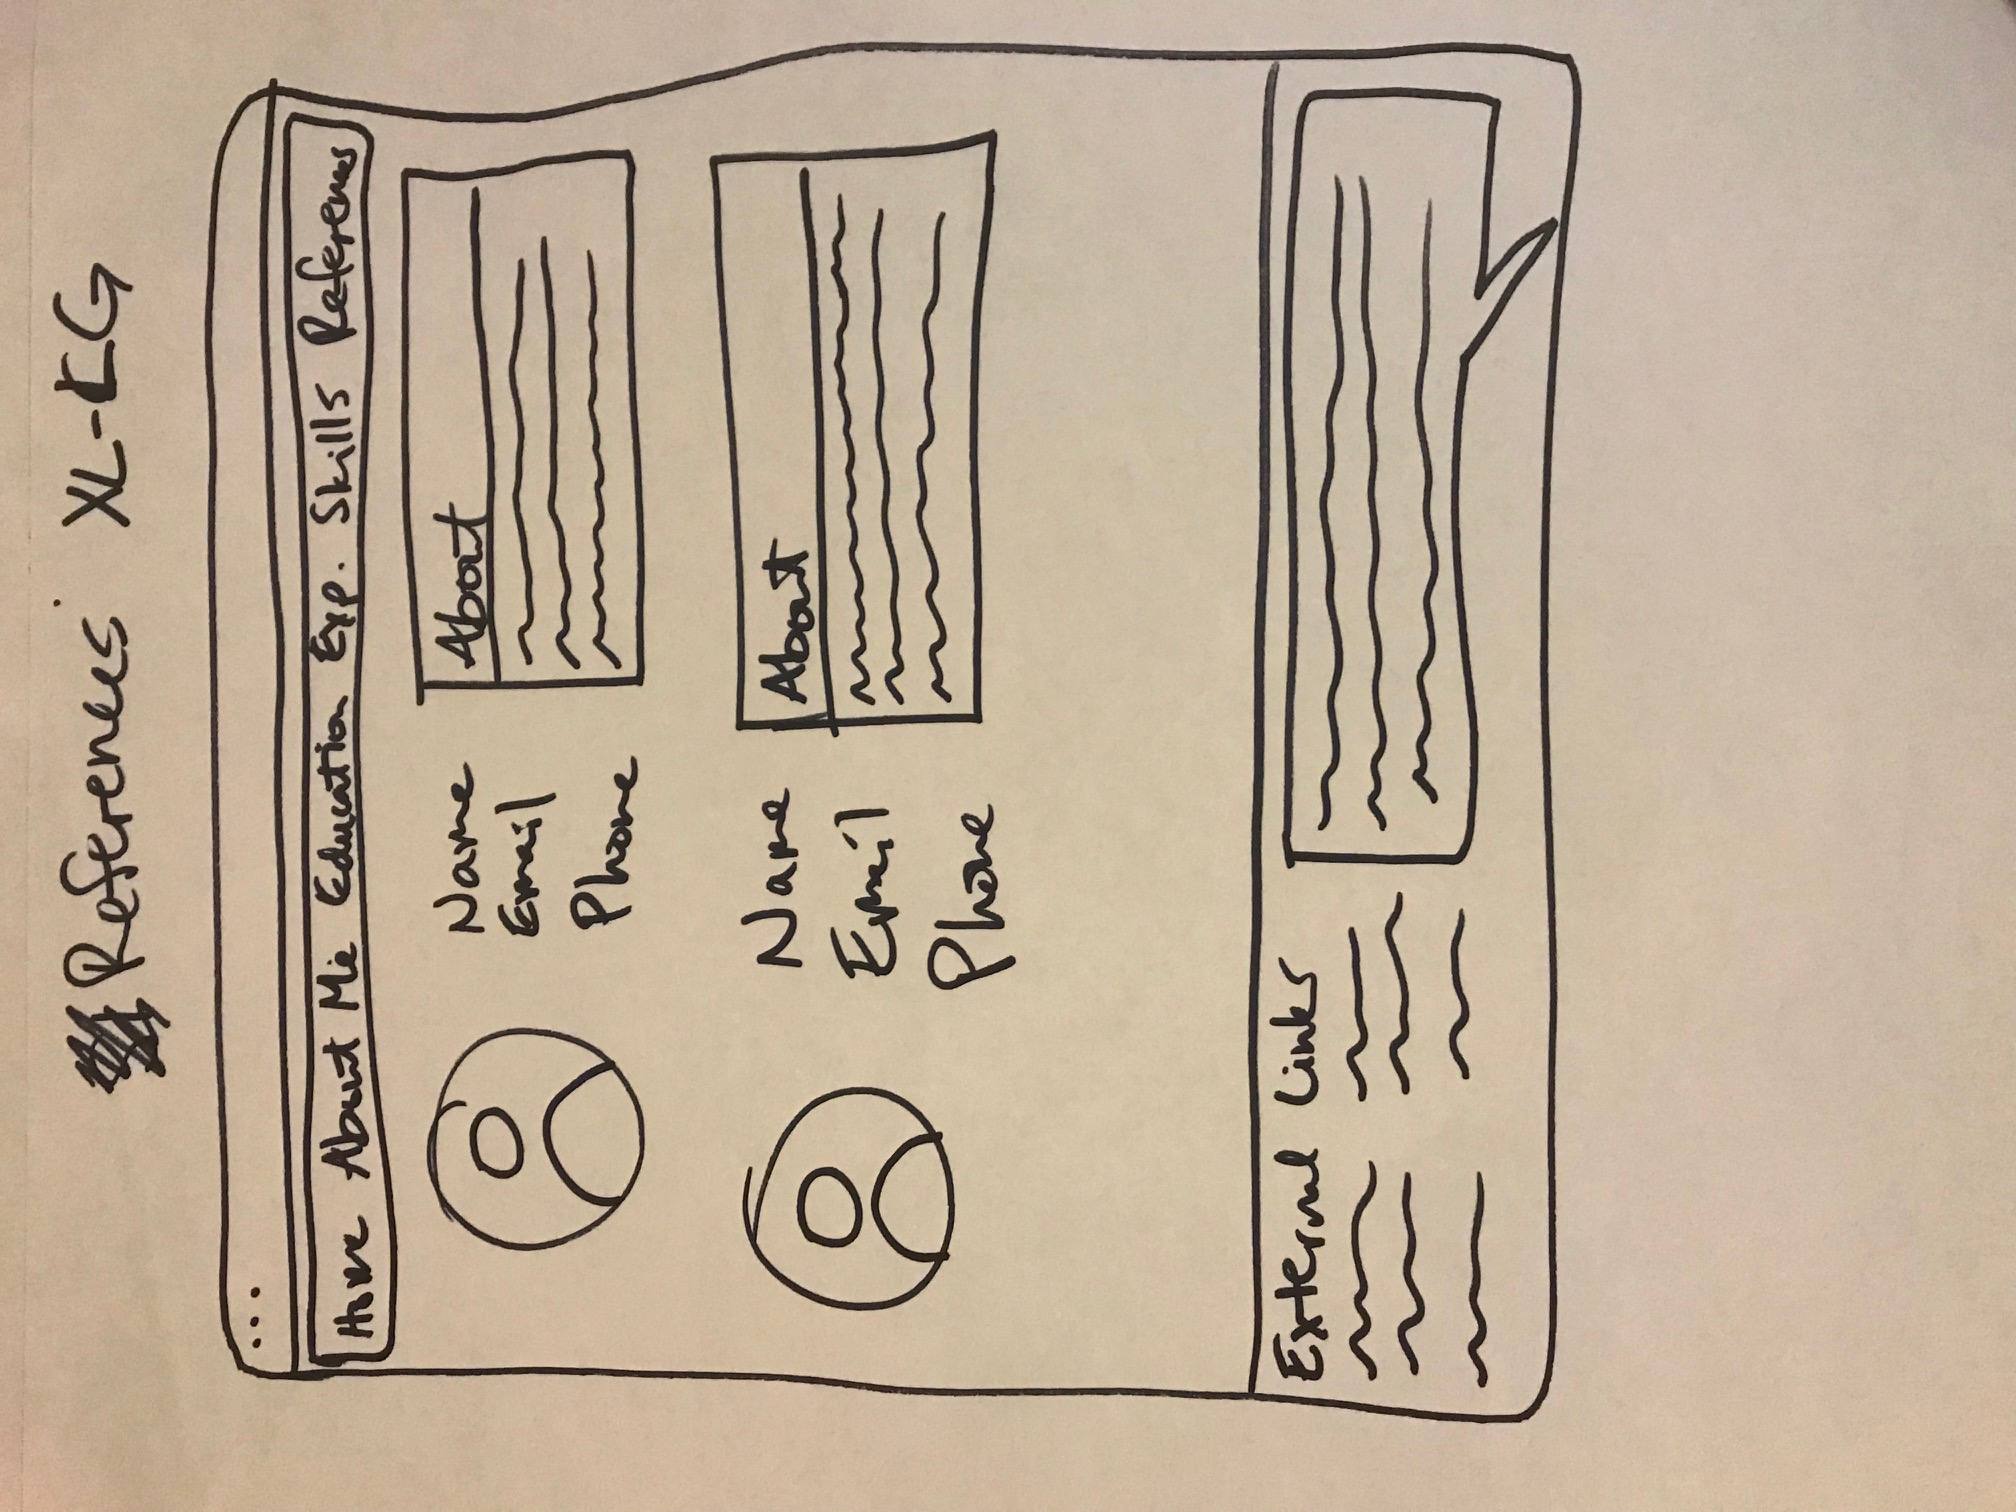 References XL-LG
Home About Me Education Exp. Skills References
Name
Email
Phone
About
Name
Email
Phone
About
External Links